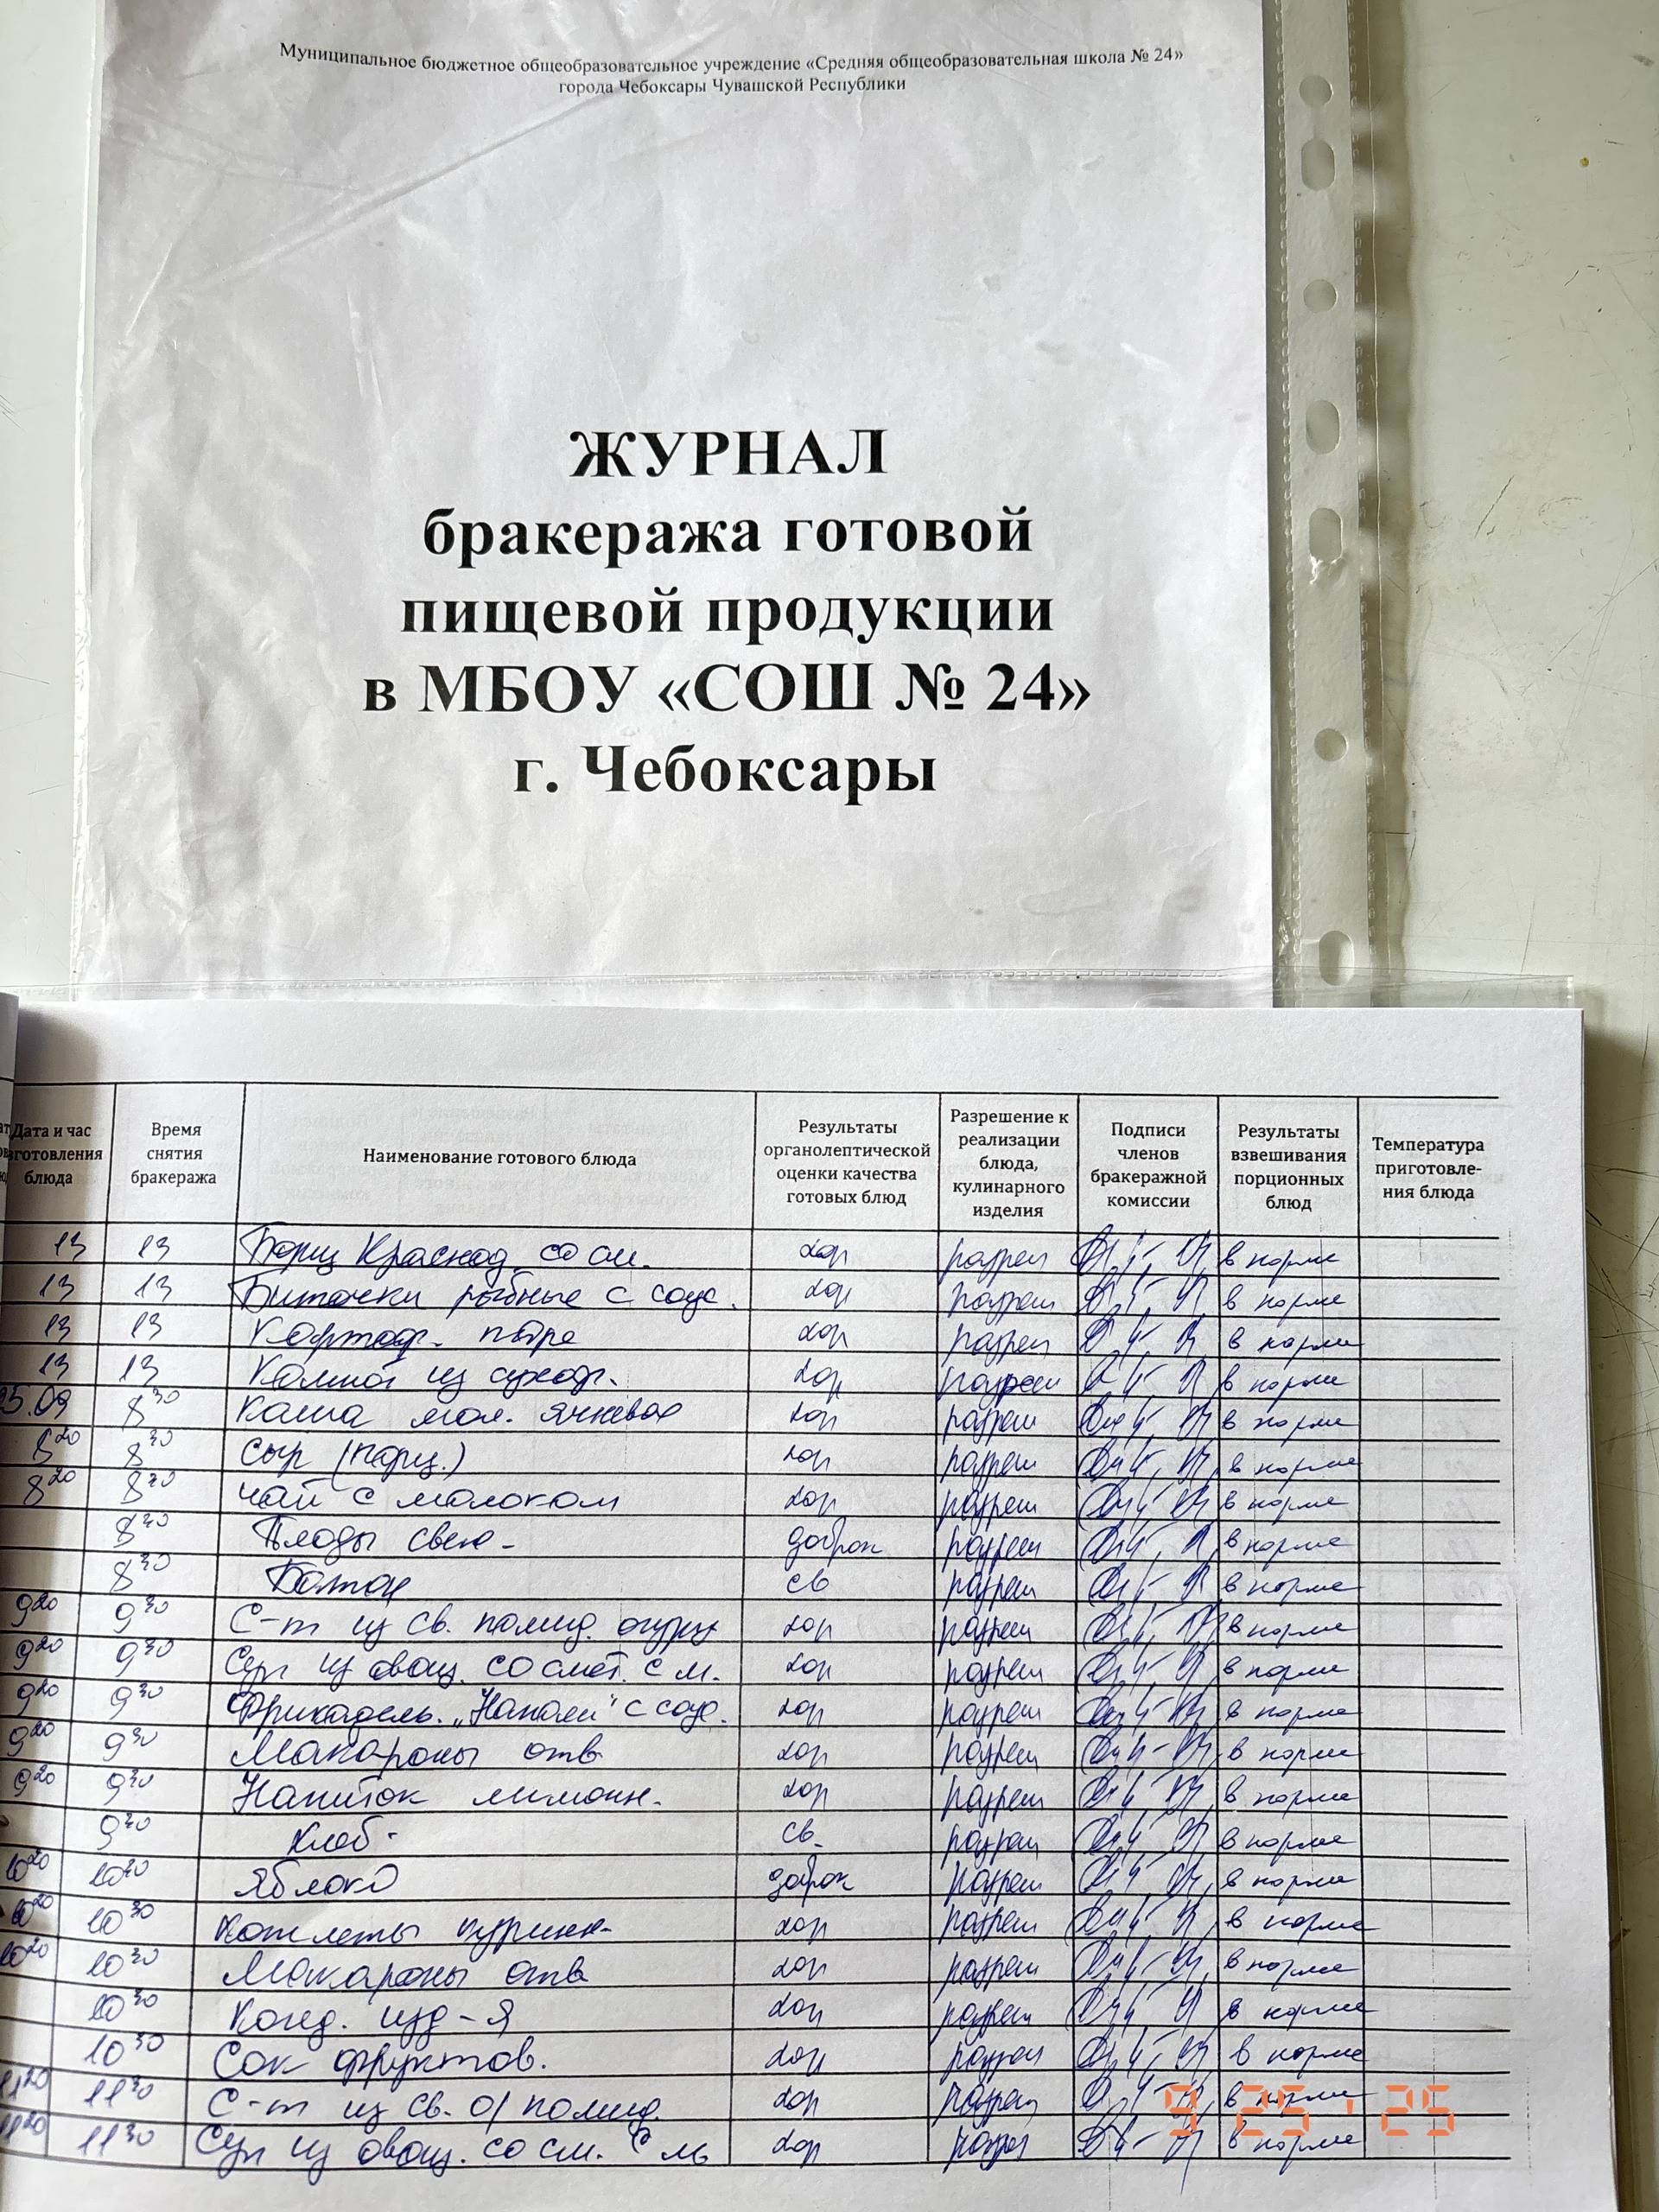 Муниципальное бюджетное общеобразовательное учреждение «Средняя общеобразовательная школа № 24»
города Чебоксары Чувашской Республики
ЖУРНАЛ
бракеража готовой
пищевой продукции
в МБОУ «СОШ № 24»
г. Чебоксары
Дата и час готовления блюда Время снятия бракеража Наименование готового блюда Результаты органолептической оценки качества готовых блюд Разрешение к реализации блюда, кулинарного изделия Подписи членов бракеражной комиссии Результаты взвешивания порционных блюд Температура приготовле-ния блюда
13 13 Борщ Краснод. со см. хор разреш в норме
13 13 Биточки рыбные с соус. хор разреш в норме
13 13 Картоф. пюре хор разреш в норме
13 13 Компот из сухофр. хор разреш в норме
25.09 8 30 Каша мол. ячневая хор разреш в норме
8 20 8 30 Сыр (порц.) хор разреш в норме
8 20 8 30 Чай с молоком хор разреш в норме
8 30 Плоды свеж- доброк разреш в норме
8 30 Батон св разреш в норме
9 20 9 30 С-т из св. помид. огурц хор разреш в норме
9 20 9 30 Суп из овощ. со смет. с м. хор разреш в норме
9 20 9 30 Фрикадель. с соус. хор разреш в норме
9 20 9 30 Макароны отв хор разреш в норме
9 20 9 30 Напиток лимонн. хор разреш в норме
9 30 Хлеб- св. разреш в норме
10 20 10 30 Яблоко доброк разреш в норме
10 20 10 30 Котлеты курин- хор разреш в норме
10 20 10 30 Макароны отв хор разреш в норме
10 30 Конд. изд-я хор разреш в норме
10 30 Сок фруктов. хор разреш в норме
11 20 11 30 С-т из св. о/ помид. хор разреш в норме
11 20 11 30 Суп из овощ. со см. с м хор разреш в норме
9 25 '25